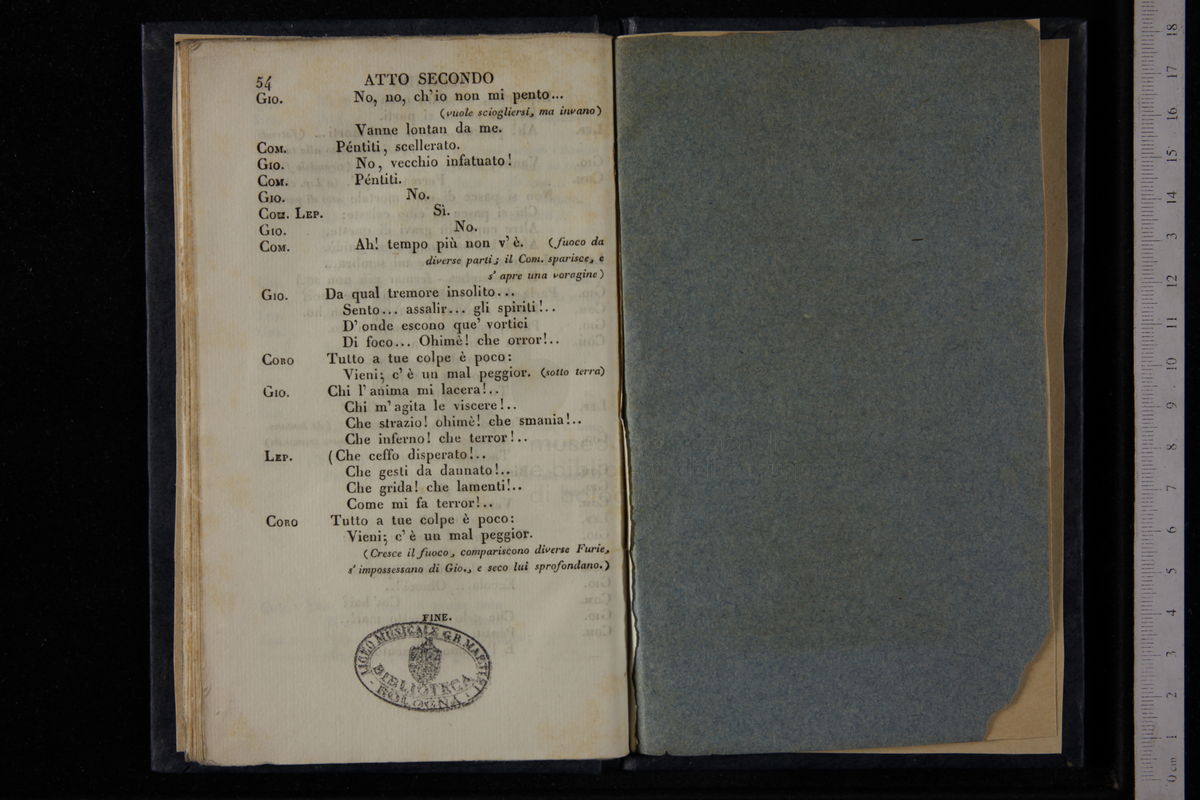 54 ATTO SECONDO
Gio. No, no, ch'io non mi pento...
(vuole sciogliersi, ma invano)
Vanne lontan da me.
Com. Péntiti, scellerato.
Gio. No, vecchio infatuato!
Com. Péntiti.
Gio. No.
Com. Lep. Sì.
Gio. No.
Com. Ah! tempo più non v'è. (fuoco da
diverse parti; il Com. sparisce, e
s'apre una voragine)
Gio. Da qual tremore insolito...
Sento... assalir... gli spiriti!..
D'onde escono que' vortici
Di foco... Ohimè! che orror!..
Coro Tutto a tue colpe è poco:
Vieni; c'è un mal peggior. (sotto terra)
Gio. Chi l'anima mi lacera!..
Chi m'agita le viscere!..
Che strazio! ohimè! che smania!..
Che inferno! che terror!..
Lep. (Che ceffo disperato!..
Che gesti da dannato!..
Che grida! che lamenti!..
Come mi fa terror!..
Coro Tutto a tue colpe è poco:
Vieni; c'è un mal peggior.
(Cresce il fuoco, compariscono diverse Furie,
s'impossessano di Gio., e seco lui sprofondano.)
FINE.
LICEO MUSICALE G.B. MARTINI
BIBLIOTECA
BOLOGNA
0 cm 1 2 3 4 5 6 7 8 9 10 11 12 13 14 15 16 17 18